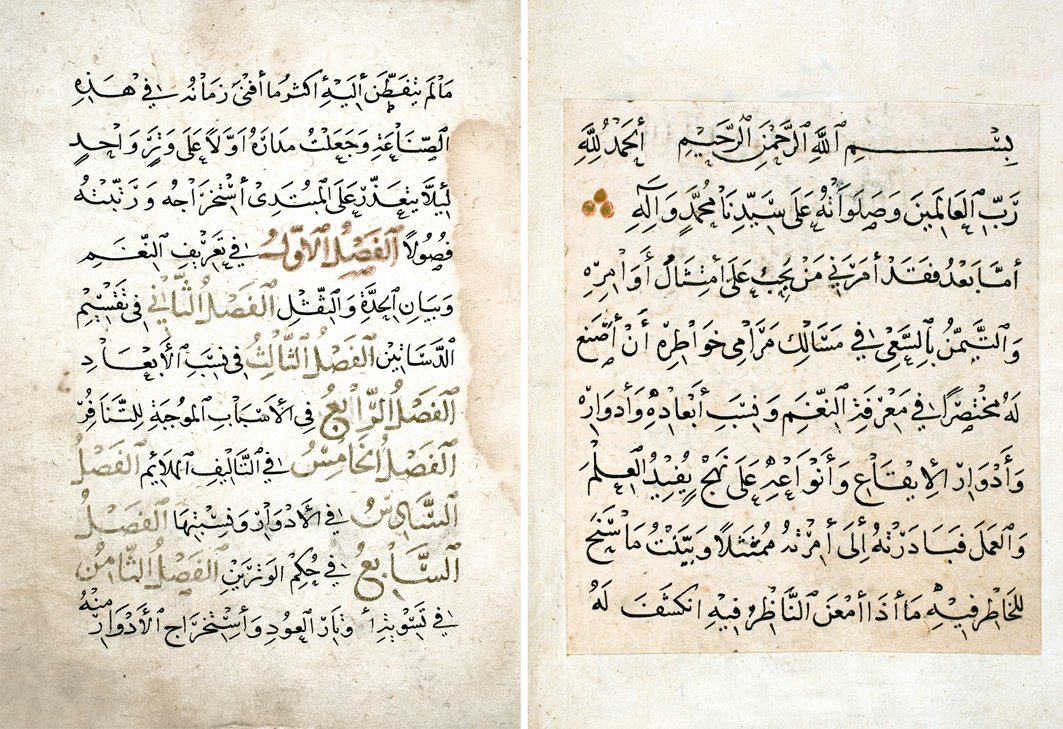 بِسْمِ ٱللَّهِ ٱلرَّحْمٰنِ ٱلرَّحِيْمِ أَلحَمْدُ لِلَّهِ
رَبِّ ٱلعَالَمِينَ وَصَلَوَاتُهُ عَلَى سَيِّدِنَا مُحَمَّدٍ وَآلِهِ
أمَّا بَعْدُ فَقَدْ أَمَرَنِي مَنْ يَجِبُ عَلَىَ أَمتِثَالُ أَوَامِرِهِ
وَالتَّيَمُّنُ بِٱلسَّعْيِ فِي مَسَالِكَ مَرَامِى خَوَاطِرِهْ أَنْ أَصْنَعَ
لَهُ مُخْتَصَرًا فِي مَعْرِفَةِ ٱلنَّغَمِ وَنِسَبِ أَبْعَادِهِ وَأدوَارِهْ
وَأَدْوَارِ الإِيقَاعِ وَأَنْوَاعِهِ عَلَى نَهْجٍ يُفِيْدُ ٱلعِلْمَ
وَٱلعَمَلَ فَبَادَرْتُهُ إِلَى أَمْرِتهُ مُمْتَثِلًا وَبَيَّنْتُ مَا سَنَحَ
لِلخَاطِرِ فِيْهِ مَا أذَا أَمْعَنَ ٱلنَّاظِرُ فِيْهِ انكَشَفَ لَهُ
مَالَمْ يَتَفَطَّنْ أليَهِ أكثَرُ مَا أَفنَى زَمَانُهُ فِي هٰذِهِ
ٱلصِّنَاعَةِ وَجَعَلْتُ مَدَارَهُ أَوَّلًا عَلَى وَتَرٍ وَاحِدٍ
لِيَلَّا يَتَعَذَّرَ عَلَى المُبْتَدِىْ أسْتِخرَاجُه وَرَتَّبْتُهُ
فُصُولًا ٱلفَصْلُ الأَوَّلُ فِي تَعْرِيْفِ النَّغَمِ
وَبَيَانِ ٱلحِدَّةِ وَٱلثِّقْلِ ٱلفَصْلُ الثَّانِي فِي تَقْسِيْمِ
الدَّسَاتِيْنِ ٱلفَصْلُ الثَّالِثُ فِي نِسَبِ الأَبْعَادِ
ٱلفَصْلُ الرَّابِعُ فِي الأَسْبَابِ المُوجِبَةِ لِلتَّنَافُرِ
ٱلفَصْلُ الخَامِسُ فِي ٱلتَّالِيْفِ المُلَائِمِ ٱلفَصْلُ
السَّادِسُ فِي الأَدْوَارِ وَنِسْبَتِهَا ٱلفَصْلُ
السَّابِعُ فِي حُكْمِ الوَتَرَيْنِ ٱلفَصْلُ الثَّامِنُ
فِي تَسْوِيَةِ أَوْتَارِ ٱلعُودِ وَأَسْتِخْرَاجِ الأَدْوَارِ مِنْهُ